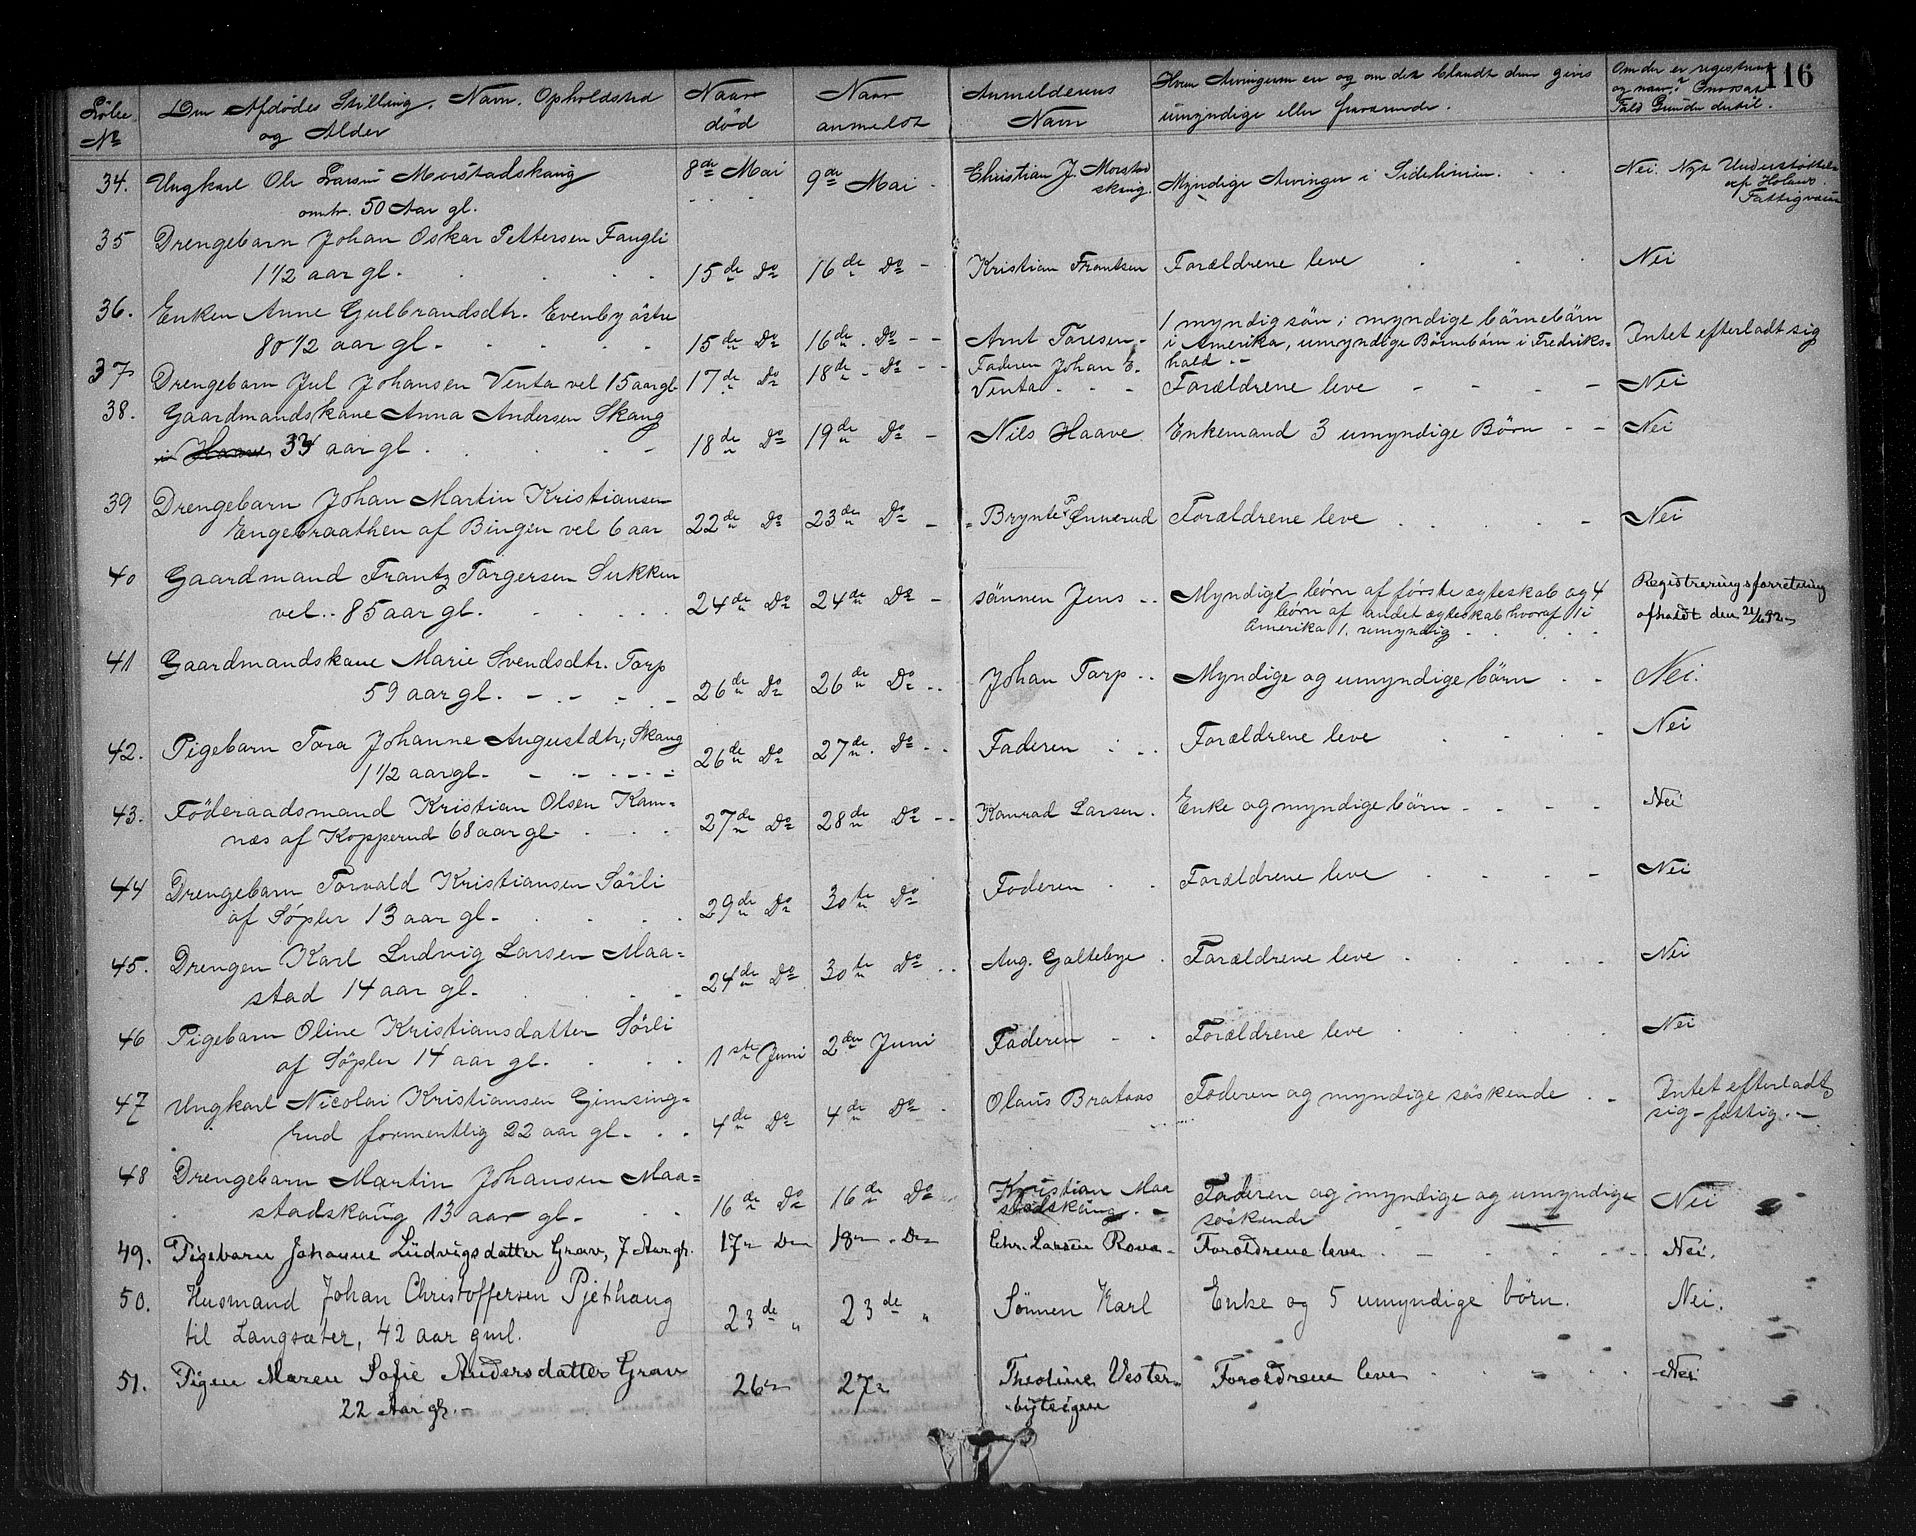 116
Löbe № | Den Afdödes Stilling, Navn, Opholdssted og Alder | Naar död | Naar anmeldt | Anmelderens Navn | Hvem Arvingerne er og om der blandt dem givis umyndige eller fraværende. | Om der er registreret og naar? I modsat Fald Grunden dertil.
34. Ungkarl Ole Larsen Morstadskaug | 8de Mai | 9de Mai | Christian J. Morstad | Myndige Arvinger i Sidelinien. | Nei. Nyt Understöttelse
omtr. 50 Aar gl. | skaug. | af Hölands Fattigvæsen
35 Drengebarn Johan Oskar Pettersen Fangli
1 1/2 aar gl. | 15de Do | 16de Do | Kristian Frantsen | Forældrene leve | Nei
36. Enken Anne Gulbrandsdtr. Evenby östre | 1 myndig sön; myndige börnebörn
80 1/2 aar gl. | 15de Do | 16de Do | Arnt Toresen | i Amerika, umyndige Börnebörn i Fredriks- | Intet efterladt sig
hald
37 Drengebarn Jul Johansen Venta vel 15 aar gl. | 17de Do | 18de Do | Faderen Johan E. Venta | Forældrene leve | Nei
38. Gaardmandskone Anna Andersen Skaug
i Haave 33 aar gl | 18de Do | 19de Do | Nils Haave | Enkemand 3 umyndige Börn | Nei
39 Drengebarn Johan Martin Kristiansen
Engebraathen af Bingen vel 6 aar | 22de Do | 23de Do | Brynte P. Gunnerud | Forældrene leve | Nei
40 Gaardmand Frantz Torgersen Sukken | Myndige börn af förste ægteskab og 4 | Registreringsforretning
vel 85 aar gl. | 24de Do | 24de Do | sönnen Jens | börn af andet ægteskab hvoraf 1 i | afholdt den
Amerika 1. umyndig
41 Gaardmandskone Marie Svendsdtr. Torp
59 aar gl. | 26de Do | 26de Do | Johan Torp | Myndige og umyndige börn | Nei.
42. Pigebarn Tora Johanne Augustdtr, Skaug
1 1/2 aar gl. | 26de Do | 27de Do | Faderen | Forældrene leve | Nei
43. Föderaadsmand Kristian Olsen Kam-
næs af Kopperud 68 aar gl. | 27de Do | 28de Do | Konrad Larsen. | Enke og myndige börn | Nei
44 Drengebarn Torvald Kristiansen Sörli
af Söpler 13 aar gl. | 29de Do | 30te Do | Faderen | Forældrene leve | Nei
45. Drengen Karl Ludvig Larsen Maa-
stad 14 aar gl. | 24de Do | 30te Do | Aug. Galtebye | Forældrene leve | Nei
46 Pigebarn Oline Kristiansdatter Sörli
af Söpler 14 aar gl. | 1ste Juni | 2den Juni | Faderen | Forældrene leve | Nei
47 Ungkarl Nicolai Kristiansen Gimsing- | Intet efterladt
rud formentlig 22 aar gl. | 4de Do | 4de Do | Olaus Brataas | Faderen og myndige söskende | sig - fattig.
48 Drengebarn Martin Johansen Maa-
stadskaug 13 aar gl. | 16de Do | 16de Do | Kristian Maastadskaug. | Faderen og myndige og umyndige söskende | Nei
49. Pigebarn Johanne Ludvigsdatter Grav, 7 Aar gl. | 17de Do | 18de Do | Chr. Larsen Rova | Forældrene leve | Nei.
50. Husmand Johan Christoffersen Pjethaug
til Langsæter, 42 aar gml. | 23de " | 23de " | Sönnen Karl | Enke og 5 umyndige börn. | Nei.
51. Pigen Maren Sofie Andersdatter Grav
22 Aar gl. | 26de | 27de | Theoline Vesterbytsigen | Forældrene leve | Nei